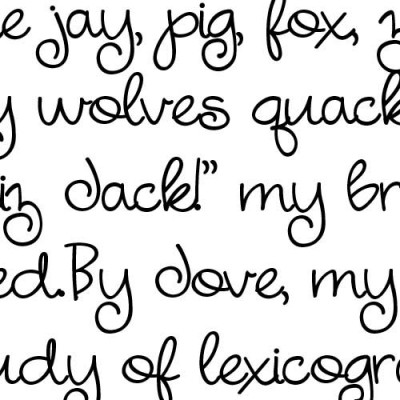 e jay, pig, fox,
y wolves quack
iz Jack!” my br
ed.By Jove, my
udy of lexicogra